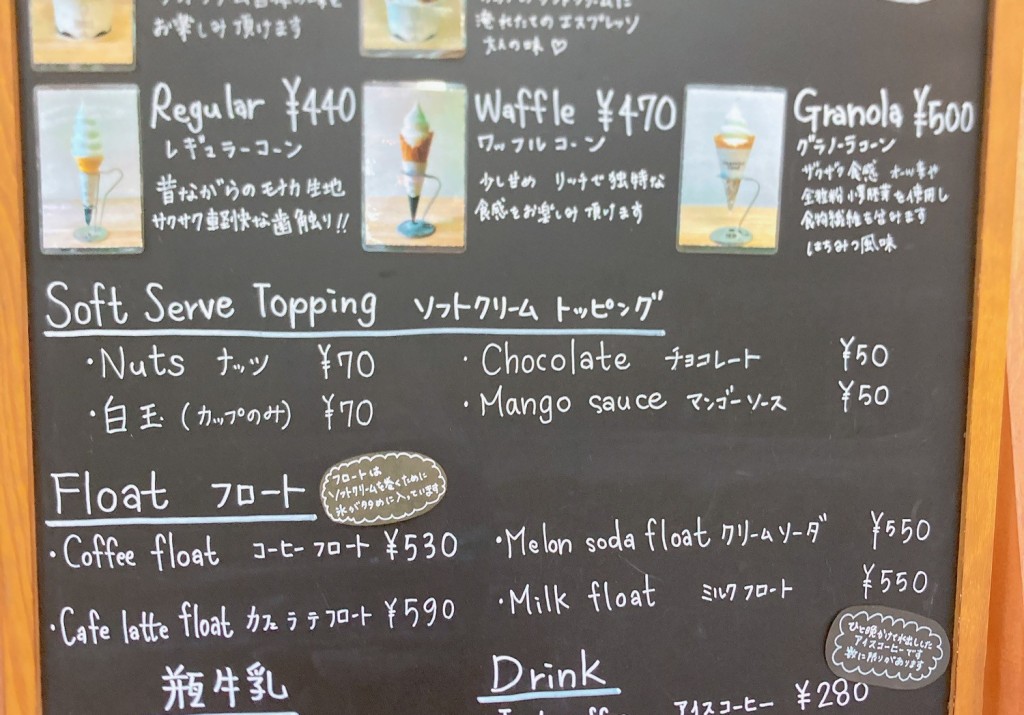 お楽しみ頂けます
淹れたての エスプレッソ
大人の味♡
Regular ¥440
レギュラーコーン
昔ながらのモナカ生地
サクサク軽快な歯触り!!
Waffle ¥470
ワッフルコーン
少し甘め リッチで独特な
食感をお楽しみ頂けます
Granola ¥500
グラノーラコーン
ザクザク食感 オーツ麦や
全粒粉 小麦胚芽を使用し
食物繊維も含めます
はちみつ風味
Soft Serve Topping ソフトクリーム トッピング
・Nuts ナッツ ¥70
・Chocolate チョコレート ¥50
・白玉 (カップのみ) ¥70
・Mango sauce マンゴーソース ¥50
Float フロート
フロートは
ソフトクリームを巻くために
氷がタタめに入っています
・Coffee float コーヒーフロート ¥530
・Melon soda float クリームソーダ ¥550
・Cafe latte float カフェラテフロート ¥590
・Milk float ミルクフロート ¥550
ひと晩かけて水出しした
アイスコーヒーです
数に限りがあります
瓶牛乳
Drink
アイスコーヒー ¥280